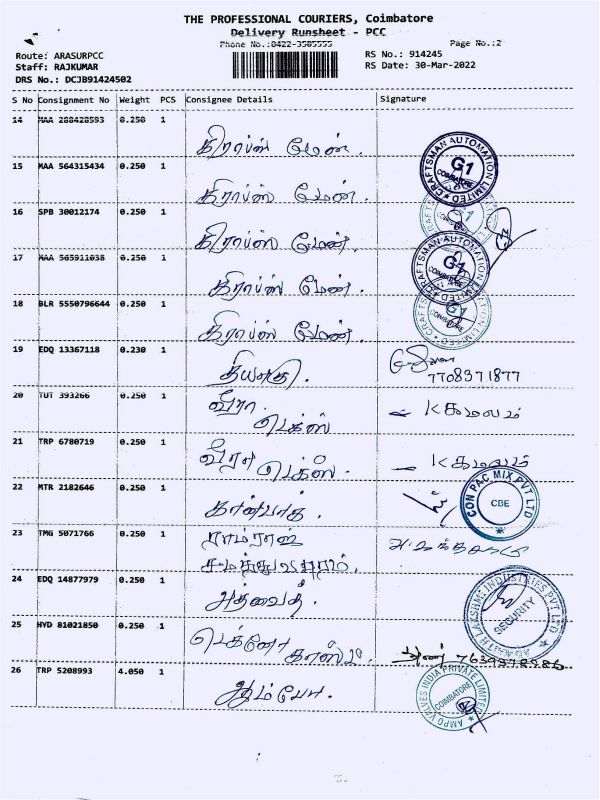 THE PROFESSIONAL COURIERS, Coimbatore
Delivery Runsheet - PCC
Phone No.:0422-3505555 Page No.:2
Route: ARASURPCC RS No.: 914245
Staff: RAJKUMAR RS Date: 30-Mar-2022
DRS No.: DCJB91424502
S No Consignment No Weight PCS Consignee Details Signature
14 MAA 288428593 0.250 1 கிராப்ஸ் மேன்.
15 MAA 564315434 0.250 1 கிராப்ஸ் மேன். CRAFTSMAN AUTOMATION LIMITED G1 COIMBATORE
16 SPB 30012174 0.250 1 கிராப்ஸ் மேன்.
17 MAA 565911038 0.250 1 கிராப்ஸ் மேன். CRAFTSMAN AUTOMATION LIMITED G1
18 BLR 5550796644 0.250 1 கிராப்ஸ் மேன். COIMBATORE
19 EDQ 13367118 0.230 1 தியாகு. 7708371877
20 TUT 393266 0.250 1 வீரா டெக்ஸ் - K கமலம்
21 TRP 6780719 0.250 1 வீரா டெக்ஸ். - K கமலம்
22 MTR 2182646 0.250 1 கான்பாக். CON PAC MIX PVT LTD CBE
23 TMG 5071766 0.250 1 ராம்ராஜ்
24 EDQ 14877979 0.250 1 அத்வைத். ADWAITH LAKSHMI INDUSTRIES PVT LTD SECURITY
25 HYD 81021850 0.250 1 டெக்னோ
26 TRP 5208993 4.050 1 ஆம்போ. AMPO VALVES INDIA PRIVATE LIMITED COIMBATORE